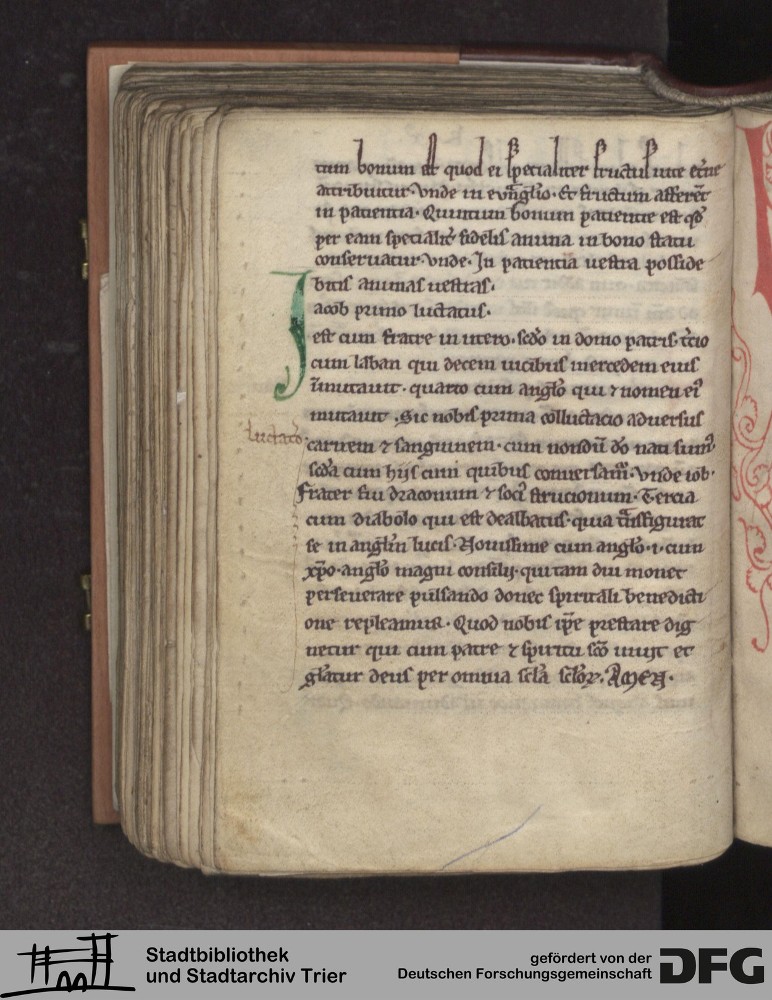 tum bonum est quod ei specialiter fructus iuste et̄ne
attribuitur. Vnde in euāglio. Et fructum afferēt
in patientia. Quintum bonum patientie est qd̄
per eam specialit̄ fidelis anima in bono statu
conseruatur. Vnde. In patientia uestra posside
bitis animas uestras.
Jacob primo luctatus.
est cum fratre in utero. scd̄o in domo patris. t̄cio
cum laban qui decem uicibus mercedem eius
īmutauit. quarto cum angl̄o qui ⁊ nomen ei᾽
mutauit. Sic nobis prima colluctacio aduersus
luctatō
carnem ⁊ sanguinem. cum nondū d̄o nati sum᾽
scd̄a cum hijs cum quibus conuersam᾽. Vnde iob.
Frater fui draconum ⁊ soci᾽ strucionum. Tercia
cum diabolo qui est dealbatus. quia t̄nsfigurat
se in angl̄m lucis. Nouissime cum angl̄o .i. cum
xp̄o. angl̄o magni consilij. qui tam diu monet
perseuerare pulsando donec spiritali benedicti
one repleamur. Quod nobis ip̄e prestare dig
netur qui cum patre ⁊ spiritu sc̄o uiuit et
gl̄atur deus per omnia sc̄la sc̄lor̄. AMEN.
Stadtbibliothek
und Stadtarchiv Trier
gefördert von der
Deutschen Forschungsgemeinschaft
DFG